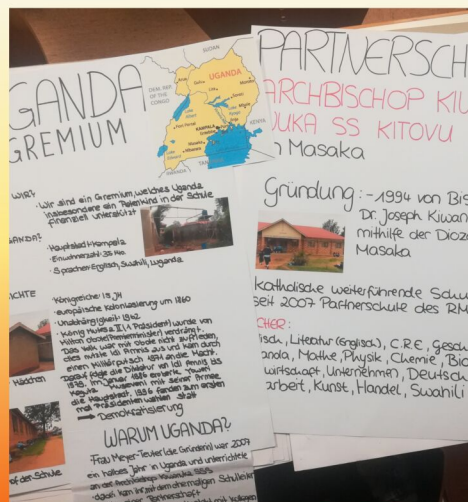 UGANDA
GREMIUM
SUDAN
DEM. REP.
OF THE
CONGO
UGANDA
KENYA
KAMPALA
Entebbe
Masaka
Mbarara
RWANDA
WIR?
· Wir sind ein Gremium, welches Uganda
insbesondere ein Patenkind in der Schule
finanziell unterstützt
GANDA?
· Hauptstadt Kampala
· Einwohnerzahl: 35 Mio.
· Sprachen: Englisch, Swahili, Luganda
ICHTE
· Königreiche: 19 JH
· europäische Kolonialisierung um 1860
· Unabhängigkeit 1962
· König Mutesa II (1. Präsident) wurde von
Milton Obote (Premierminister) verdrängt.
Das Volk war mit Obote nicht zufrieden,
dies nutzte Idi Amin aus und kam durch
einen Militärputsch 1971 an die Macht.
Darauf folgte die Diktatur von Idi Amin bis
1979. Im Januar 1986 eroberte Yoweri
Kaguta Museveni mit seiner Armee
die Hauptstadt. 1996 fanden zum ersten
mal Präsidentenwahlen statt
→ Demokratisierung
Mädchen
of der Schule
WARUM UGANDA?
· Frau Meyer-Teuter (die Gründerin) war 2007
ein halbes Jahr in Uganda und unterrichtete
an der SSS
· dabei kam ihr mit dem ehemaligen Schulleiter
einer Partnerschaft
mit Kollegen
PARTNERSCH
ARCHBISCHOP KIW
NUKA SS KITOVU
n Masaka
Gründung: - 1994 von Bis
Dr. Joseph Kiwan
mithilfe der Diöze
Masaka
katholische weiterführende Schu
seit 2007 Partnerschule des RM
CHER:
isch, Literatur (Englisch), C.R.E., Gesch
Mathe, Physik, Chemie, Bio
wirtschaft, Unternehmen, Deutsch
arbeit, Kunst, Handel, Swahili